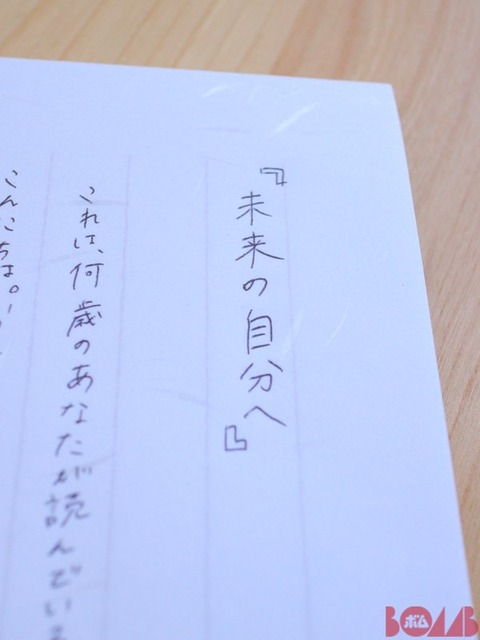 『未来の自分へ』
これは、何歳のあなたが読んでいる
こんにちは。
BOMB
ボム